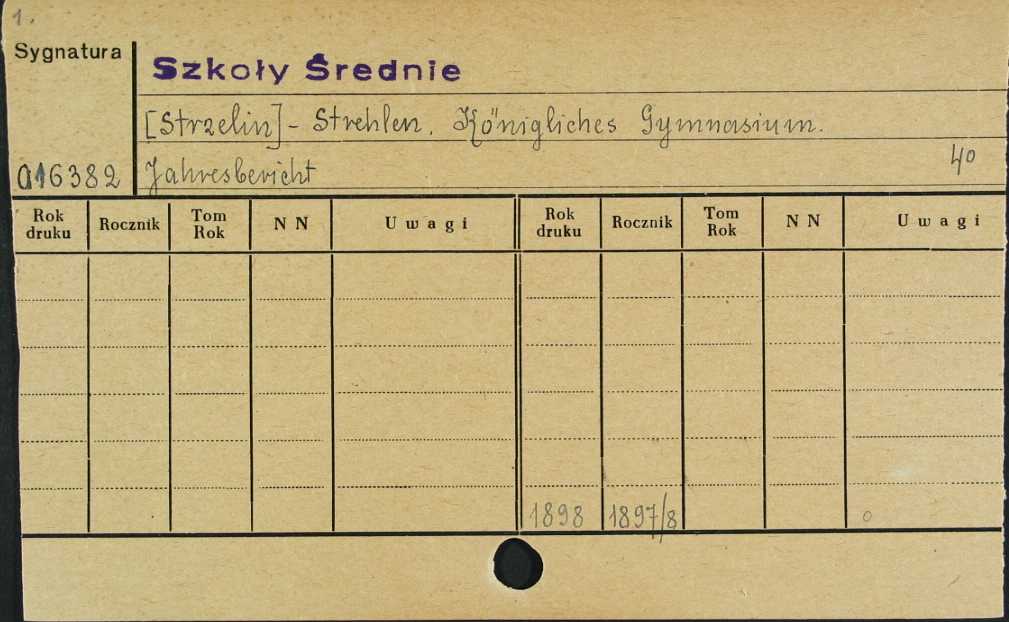 1.
Sygnatura
Szkoły Średnie
[Strzelin] - Strehlen. Königliches Gymnasium.
a16382 Jahresbericht 4o
Rok druku Rocznik Tom Rok N N Uwagi Rok druku Rocznik Tom Rok N N Uwagi
1898 1897/8 o